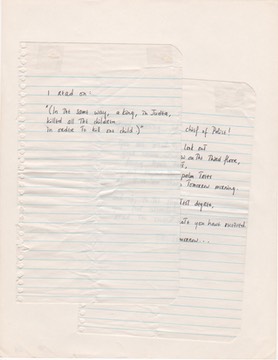 I read on:
"(In the same way, a king, in Judea,
killed all the children
in order to kill one child)"
chief of Police!
look out
on the Third floor,
palm Trees
Tomorrow morning.
degree,
you have received